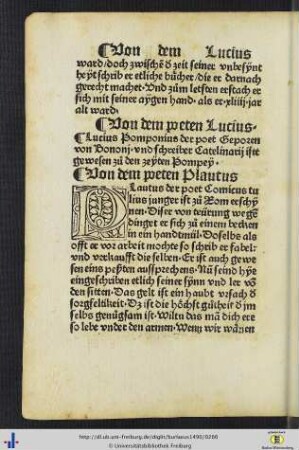 ¶Von dem Lucius
ward/doch zwischē ď zeit seiner vnbesynt
heyt schrib er etliche bücher/die er darnach
gerecht machet· Vnd zům letsten erstach er
sich mit seiner aygen hand· als er·xliiij·jar
alt ward·
¶Von dem poeten Lucius·
¶Lucius Pomponius der poet Geporen
von Bononj·vnd schreiber Catelinarij ist
gewesen zů den zeyten Pompey·
¶Von dem poeten Plautus
PLautus der poet Comicus tu
lius junger ist zů Rom erschy
nen· Diser von teürung wegē
dinget er sich zů einem becken
in ein handtmül· Doselbs als
offt er vor arbeit mochte so schrib er fabel:
vnd verkaufft die selben· Er ist auch gewe
sen eins auffsprechens· Nů seind hye
eingeschriben etlich seiner synn vnd ler vō
den sitten· Das gelt ist ein haubt vrsach ď
sorgfeltikeit· Dz ist die höchst gütheit ď jm
selbs genůgsam ist· Wiltu das mā dich ere
so lebe vnder den armen· Wenn wir wānen
http://dl.ub.uni-freiburg.de/diglit/burlaeus1490/0266
© Universitätsbibliothek Freiburg